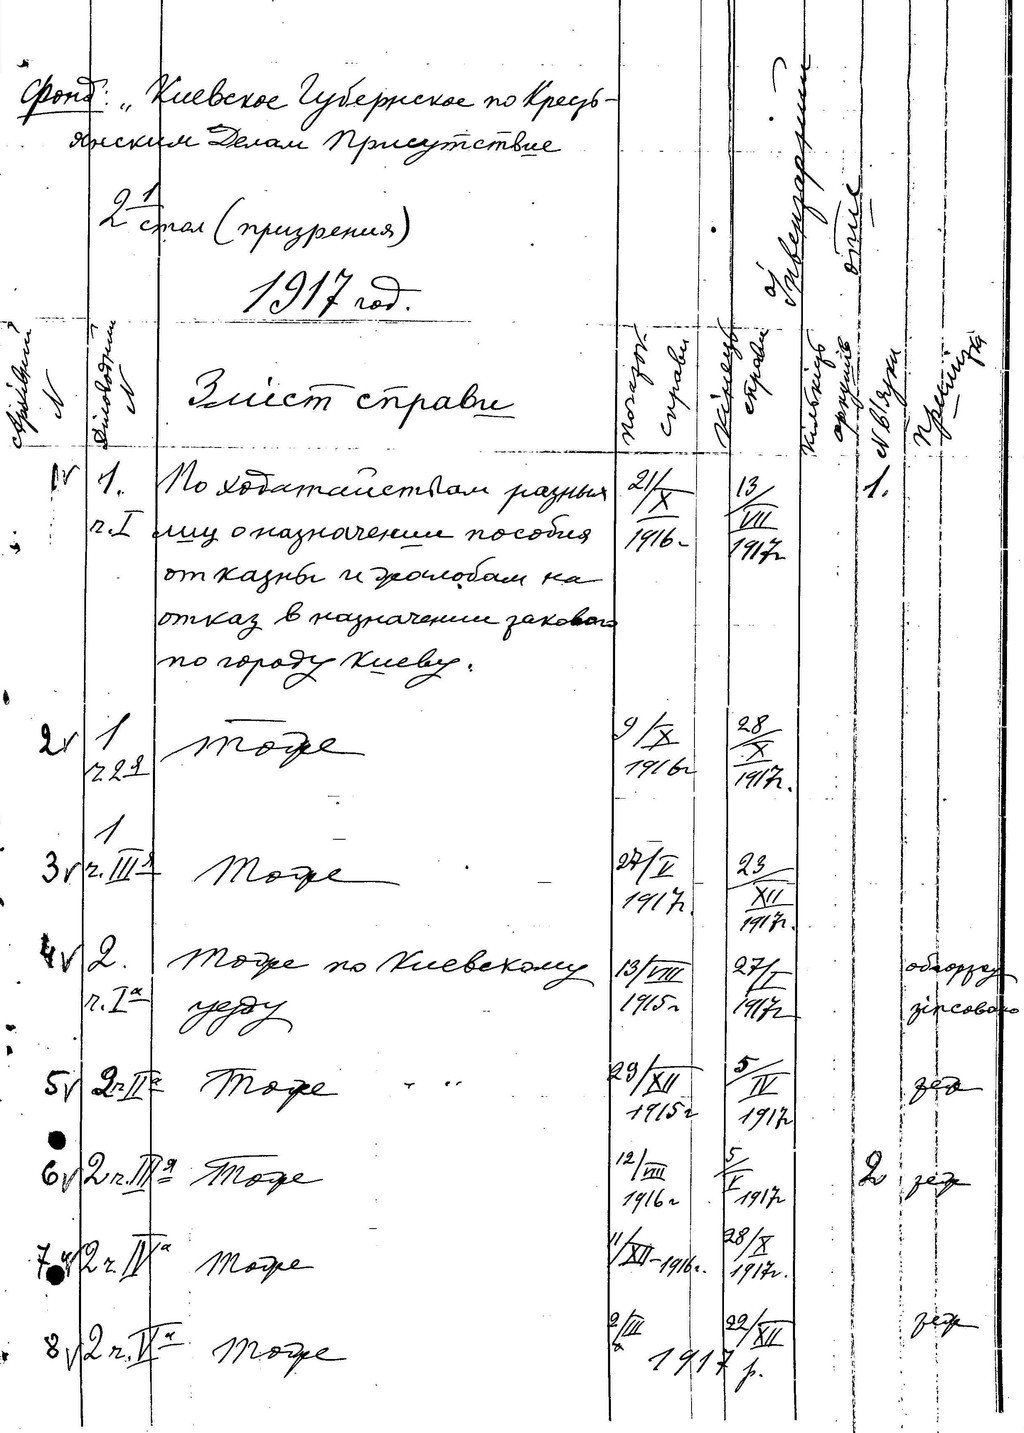 Фонд: „Киевское Губернское по Кресть-
янским Делам Присутствие
2 1 стол (призрения)
1917 год.
Інвентарний опис
Архівний N
Діловодний N
Зміст справи
початок справи
Кінець справи
Кількість аркушів
N в'язки
Примітка
1 v 1. По ходатайствам разных 21/X 13/VII 1.
ч. I лиц о назначении пособия 1916 г 1917 г
от казны и жалобам на
отказ в назначении такового
по городу Киеву.
2 v 1 тоже 9/X 28/X
ч. 2я 1916 г 1917 г.
1
3 v ч. III я тоже 27/V 23/XII
1917 г. 1917 г.
4 v 2. тоже по Киевскому 13/VIII 27/I
ч. I а уезду 1915 г 1917 г зіпсовано
5 v 2 ч. II а Тоже " " 29/XII 5/IV
1915 г 1917 г
6 v 2 ч. III я Тоже 12/VIII 5/V 2
1916 г 1917 г
7 v 2 ч. IV а тоже 11/XII-1916 г. 28/X
1917 г.
8 v 2 ч. V а тоже 2/III 22/XII
1917 р.